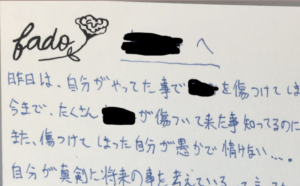 fado
へ
昨日は、自分がやってた事で を傷つけてしま
今まで、たくさん が傷ついて来た事 知ってるのに
また、傷つけてしまった自分が愚かで情けない...
自分が真剣に将来の事を考えている